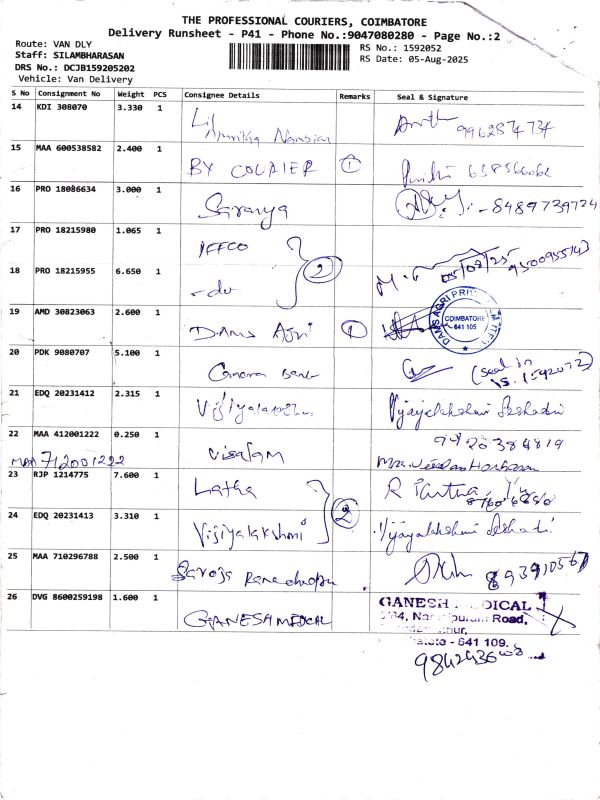 THE PROFESSIONAL COURIERS, COIMBATORE
Delivery Runsheet - P41 - Phone No.:9047080280 - Page No.:2
Route: VAN DLY
Staff: SILAMBHARASAN
DRS No.: DCJB159205202
Vehicle: Van Delivery
RS No.: 1592052
RS Date: 05-Aug-2025
S No Consignment No Weight PCS Consignee Details Remarks Seal & Signature
14 KDI 308070 3.330 1
9962874734
15 MAA 600538582 2.400 1 BY COURIER 1
16 PRO 18086634 3.000 1 Saranya 8489739724
17 PRO 18215980 1.065 1 IFFCO 2
9500955143
18 PRO 18215955 6.650 1 -do-
19 AMD 30823063 2.600 1 DAMS Agri 1
DAMS AGRI
COIMBATORE
641 105
20 PDK 9080707 5.100 1 Canara bank (seal)
21 EDQ 20231412 2.315 1 Vijiyalakshmi Vijayalakshmi Seshadri
22 MAA 412001222 0.250 1 Visalam
MAA 712001222
23 RJP 1214775 7.600 1 Latha 2
24 EDQ 20231413 3.310 1 Vijiyalakshmi Vijayalakshmi Seshadri
25 MAA 710296788 2.500 1 Saroja
26 DVG 8600259198 1.600 1 GANESH MEDICAL
GANESH MEDICAL
Road,
641 109.